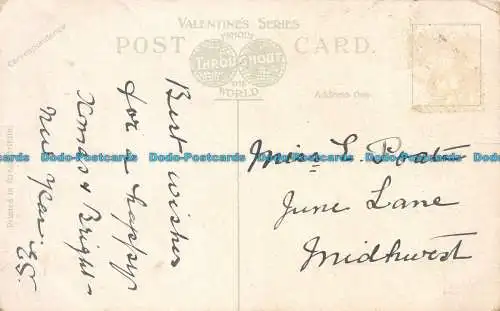 VALENTINE'S SERIES
FAMOUS
POST CARD.
THROUGHOUT
THE
WORLD
Correspondence
Address Only
Printed in
Best wishes
for a happy
Xmas & Bright
New Year. ES.
Miss E. Poat
June Lane
Midhurst
Dodo-Postcards Dodo-Postcards Dodo-Postcards Dodo-Postcards Dodo-Postcards Dodo-Postcards